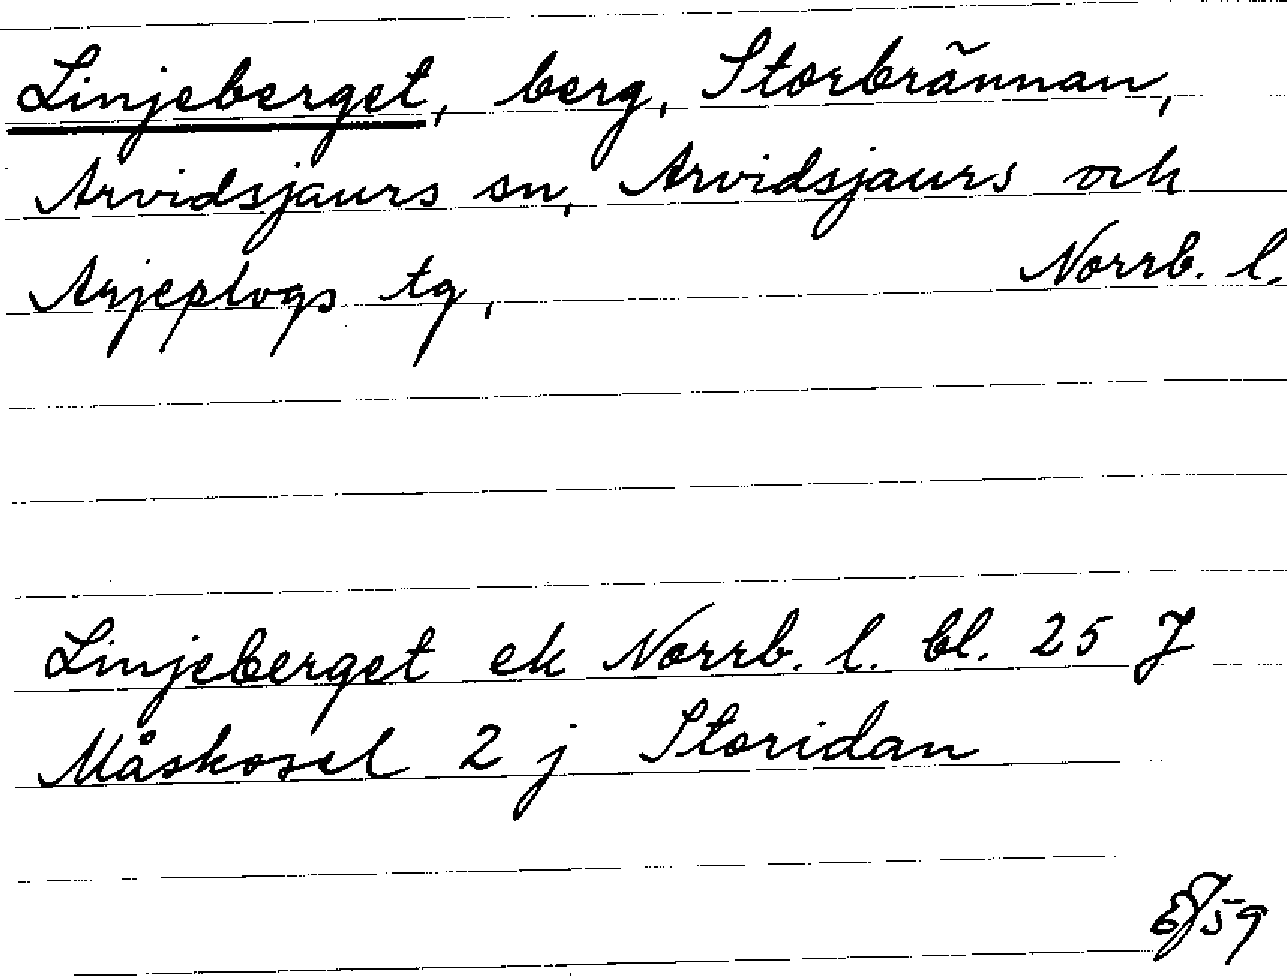 Linjeberget, berg, Storbrännan,
Arvidsjaurs sn, Arvidsjaurs och
Arjeplogs tg, Norrb. l.
Linjeberget ek Norrb. l. bl. 25 J
Måskosel 2 j Storidan
59